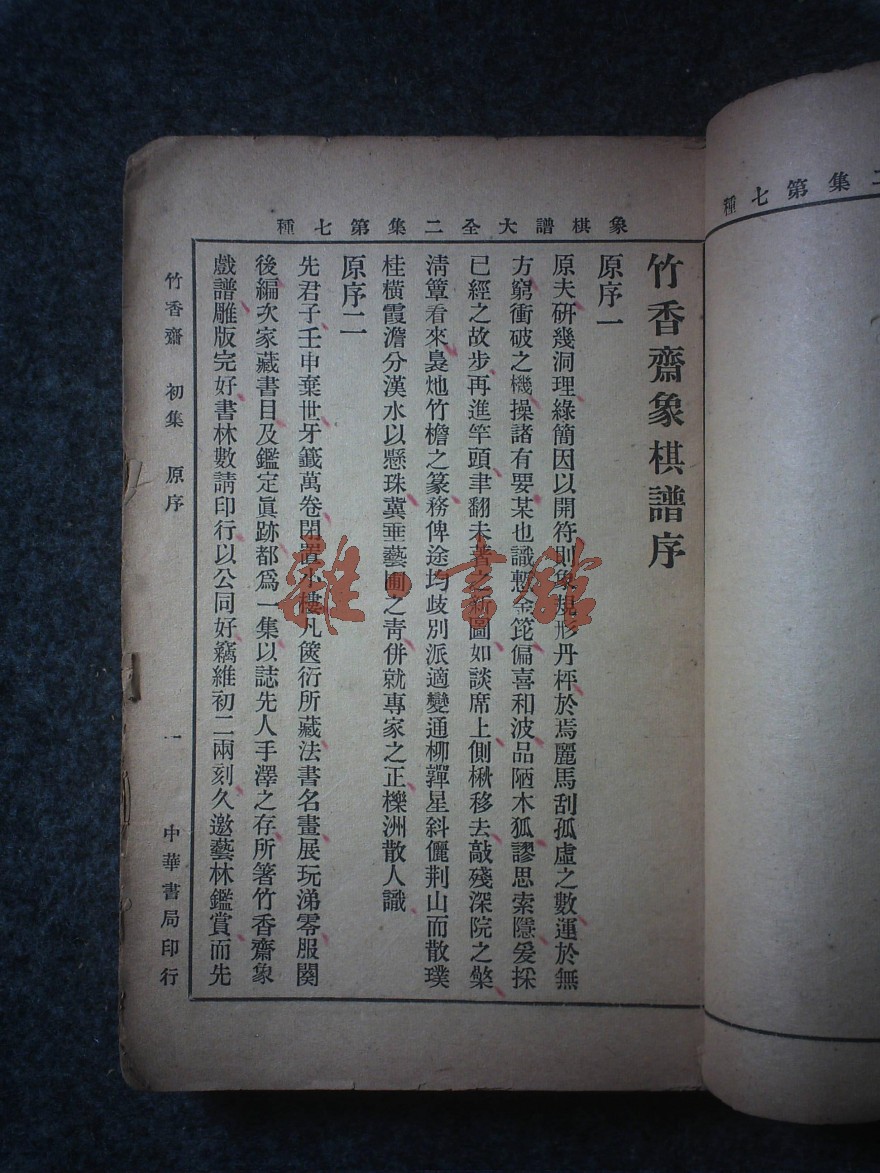 象棋譜大全二集第七種
二集第七種
竹香齋象棋譜序
原序一
原夫研幾洞理綠簡因以開符則象規形丹枰於焉麗馬刮孤虛之數運於無
方窮衝破之機操諸有要某也識慙金箆偏喜和波品陋木狐謬思索隱爰採
已經之故步再進竿頭聿翻未著之新圖如談席上側楸移去敲殘深院之檠
清簟看來裊灺竹檐之篆務俾途均歧別派適變通栁嚲星斜儷荆山而散璞
桂橫霞澹分漢水以懸珠冀垂藝圃之靑併就專家之正櫟洲散人識
原序二
先君子壬申棄世牙籤萬卷閉置小樓凡篋衍所藏法書名畫展玩涕零服闋
後編次家藏書目及鑑定眞跡都爲一集以誌先人手澤之存所箸竹香齋象
戲譜雕版完好書林數請印行以公同好竊維初二兩刻久邀藝林鑑賞而先
竹香齋 初集 原序
一
中華書局印行
雜·書館